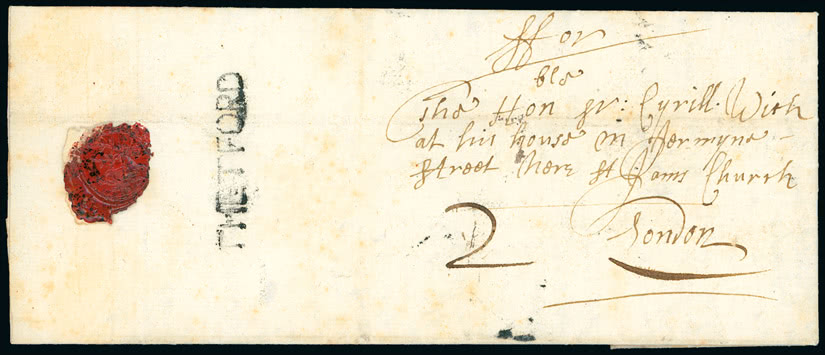 ffor
The Honble Sr: Cyrill Wich
at his house in Jermyne
Street nere St Jams Church
London
2
THETFORD